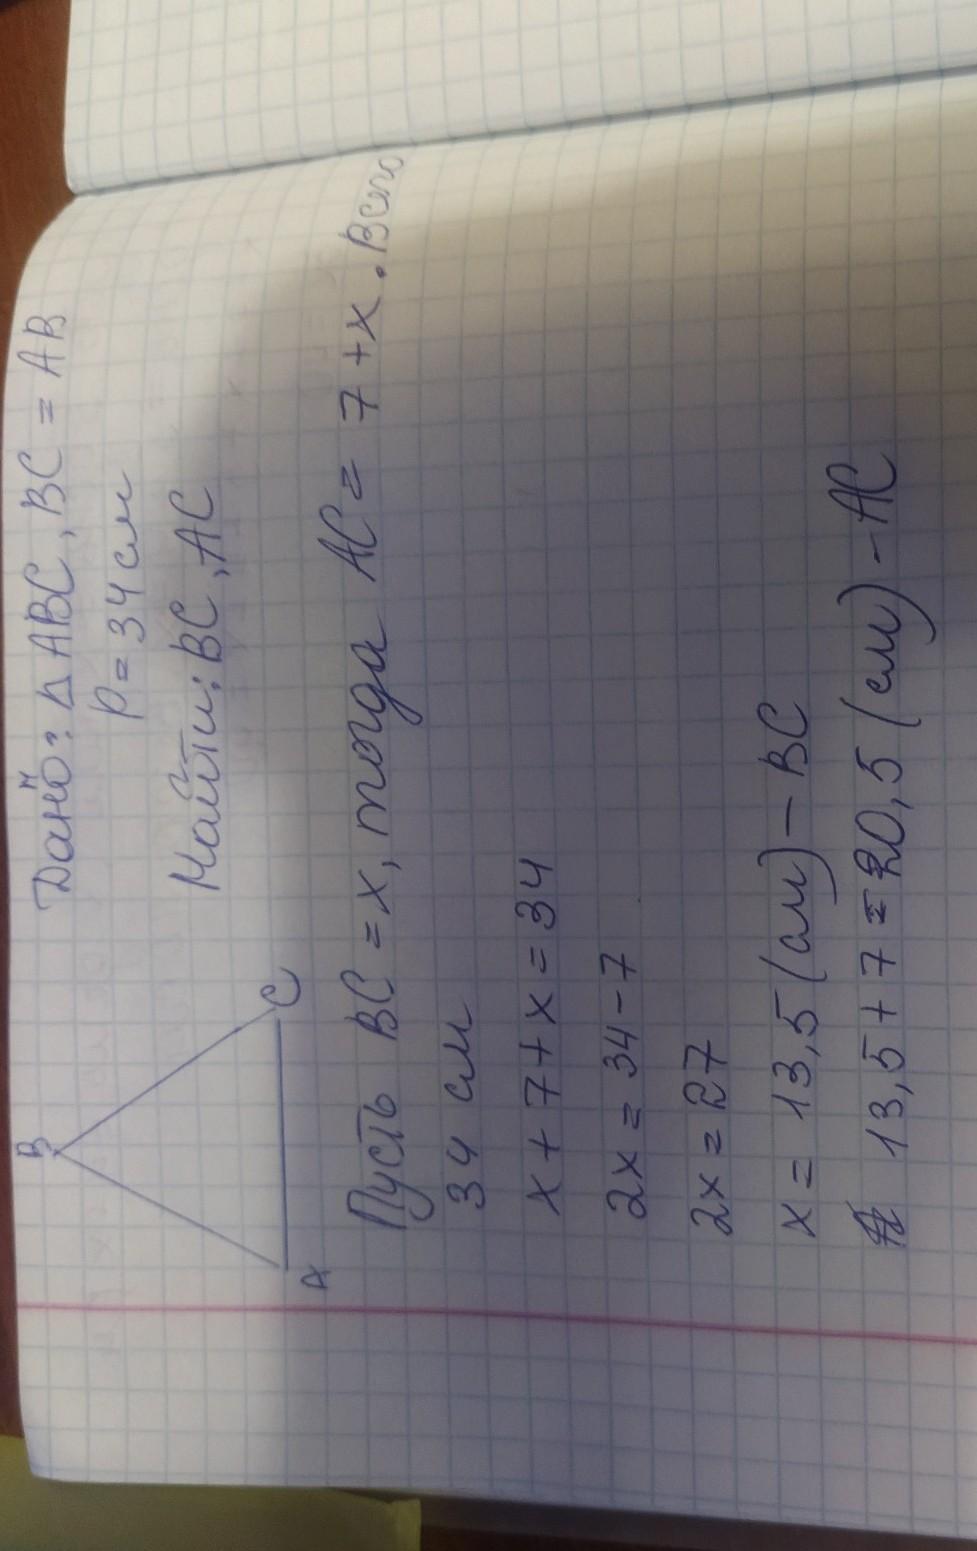 Дано: ΔABC, BC = AB
P = 34 см
Найти: BC, AC
B
A
C
Пусть BC = x, тогда AC = 7 + x. Всего
34 см
x + 7 + x = 34
2x = 34 - 7
2x = 27
x = 13,5 (см) - BC
13,5 + 7 = 20,5 (см) - AC